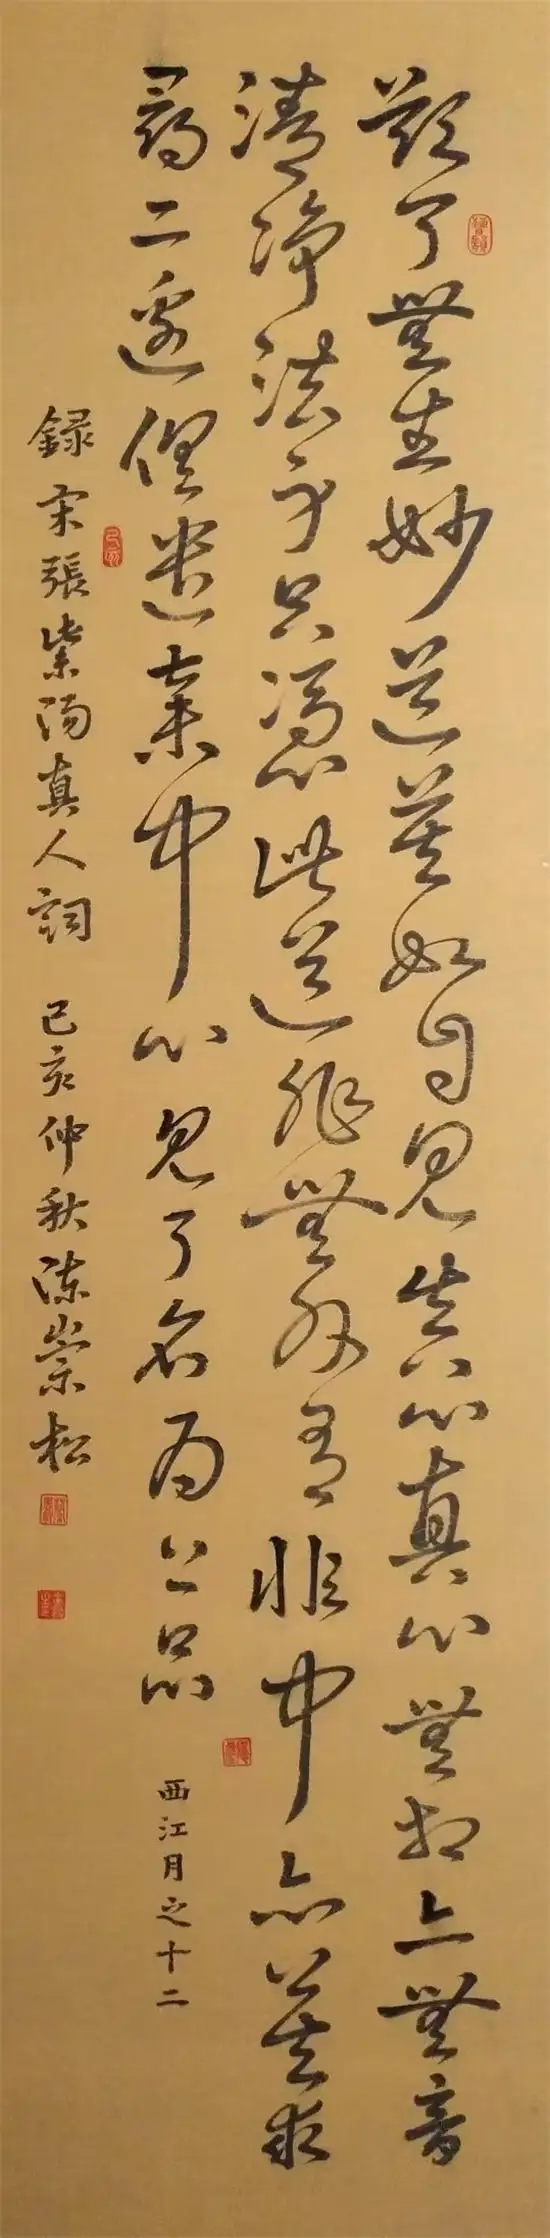 欲了無生妙道莫如自見真心真心無相亦無音
清淨法身只憑此道非無非有非中亦莫求
尋二邊俱遣棄中心見了名為上品
西江月之十二
錄宋張紫陽真人詞 己亥仲秋陳崇松